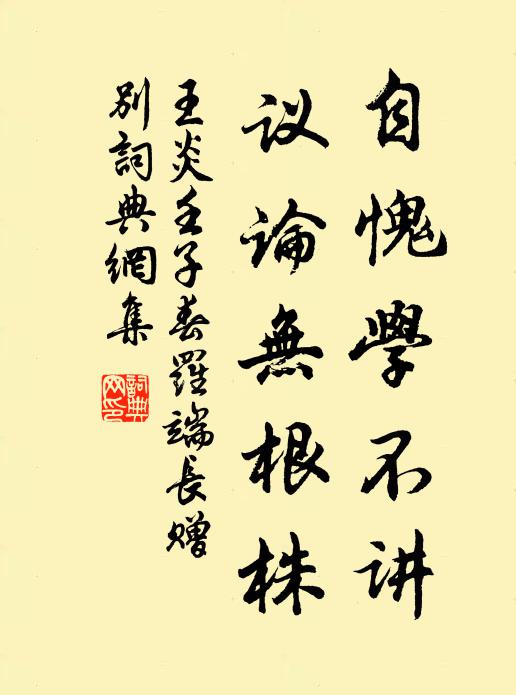 自愧學不讲
议論無根株
王炎壬子春羅端長赠
别詞典網集
詞典
网印